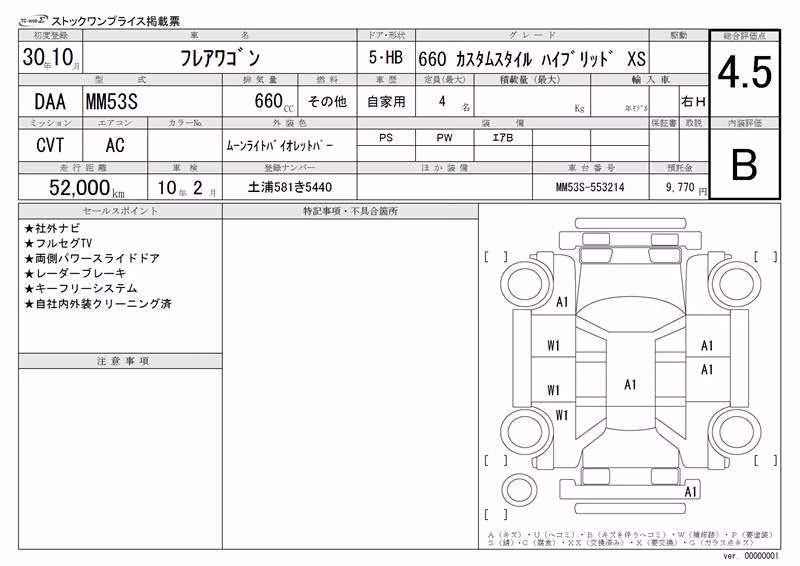 TC-webΣ ストックワンプライス掲載票
初度登録 車名 ドア・形状 グレード 駆動 総合評価点
30年10月 フレアワゴン 5・HB 660 カスタムスタイル ハイブリッド XS 4.5
型式 排気量 燃料 車歴 定員(最大) 積載量(最大) 輸入車
DAA MM53S 660CC その他 自家用 4名 Kg 年モデル 右H
ミッション エアコン カラーNo. 外装色 装備 保証書 取説 内装評価
CVT AC ムーンライトバイオレットパー PS PW エアB B
走行距離 車検 登録ナンバー ほか装備 車台番号 預託金
52,000km 10年2月 土浦581き5440 MM53S-553214 9,770円
セールスポイント 特記事項・不具合箇所
★社外ナビ
★フルセグTV
★両側パワースライドドア
★レーダーブレーキ
★キーフリーシステム
★自社内外装クリーニング済
注意事項
[ ] [ ]
A1
W1 A1
A1
W1 A1
W1
[ ] [ ]
A1
[ ]
A(キズ)・U(ヘコミ)・B(キズを伴うヘコミ)・W(補修跡)・P(要塗装)
S(錆)・C(腐食)・XX(交換済み)・X(要交換)・G(ガラス点キズ)
ver. 00000001